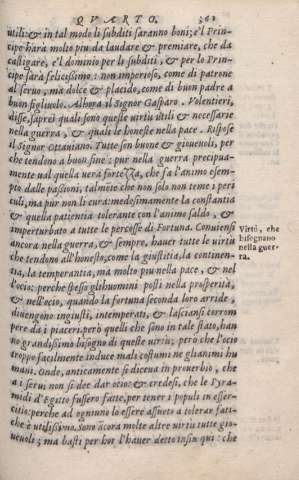 QVARTO. 361
utili: & in tal modo li subditi saranno boni; e'l Prin-
cipe harà molto piu da laudare & premiare, che da
castigare, e'l dominio per li subditi, & per lo Prin-
cipe sarà felicissimo: non imperioso, come di patrone
al seruo; ma dolce & placido, come di buon padre a
buon figliuolo. Alhora il Signor Gasparo. Volentieri,
disse, saprei quali sono queste uirtu utili & necessarie
nella guerra, & quale le honeste nella pace. Rispose
il Signor Ottauiano. Tutte son buone & gioueuoli, per
che tendono a buon fine: pur nella guerra precipua-
mente ual quella uera fortezza, che fa l'animo esem-
pto dalle passioni, talmẽte che non solo non teme i peri
culi, ma pur non li cura: medesimamente la constantia
& quella patientia tolerante con l'animo saldo, &
imperturbato a tutte le percosse di Fortuna. Conuiensi
ancora nella guerra, & sempre, hauer tutte le uirtu
che tendono all'honesto, come la giustitia, la continen-
tia, la temperantia, ma molto piu nella pace, & nel
l'ocio; perche spesso gli huomini posti nella prosperità,
& nell'ocio, quando la fortuna seconda loro arride,
diuengono ingiusti, intemperati, & lasciansi corrom
pere da i piaceri. però quelli che sono in tale stato, han
no grandissimo bisogno di queste uirtu; però che l'ocio
troppo facilmente induce mali costumi ne gli animi hu
mani. Onde, anticamente si diceua in prouerbio, che
a i serui non si dee dar ocio: & credesi, che le Pyra-
midi d'Egitto fussero fatte, per tener i populi in esser-
citio: perche ad ogniuno lo essere assueto a tolerar fati-
che è utilissimo. Sono ãcora molte altre uirtu tutte gio
ueuoli; ma basti per hor l'hauer detto insin qui: che
Virtù, che
bisognano
nella guer-
ra.